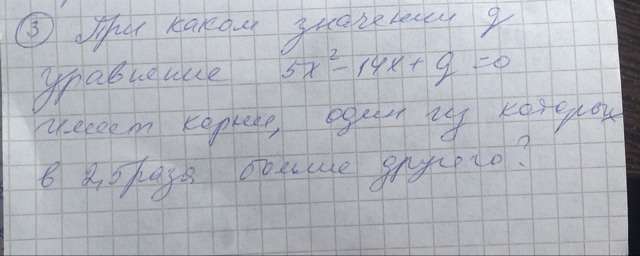 ③ При каком значении q
уравнение 5x² - 14x + q = 0
имеет корни, один из которых
в 2,5 раза больше другого?